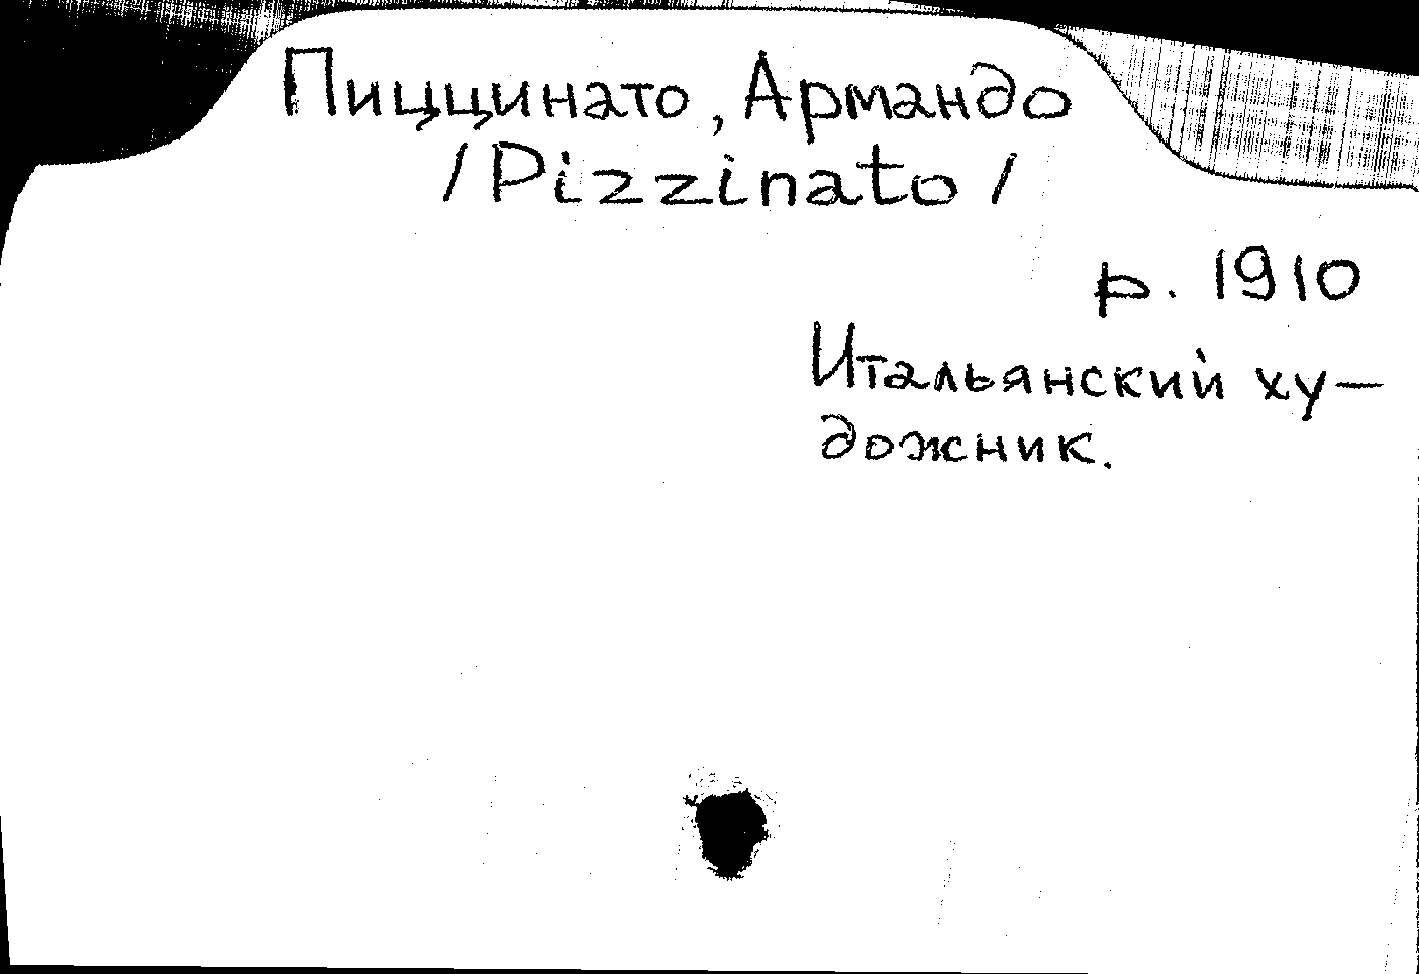 Пиццинато, Армандо
/Pizzinato/
р. 1910
Итальянский ху-
дожник.